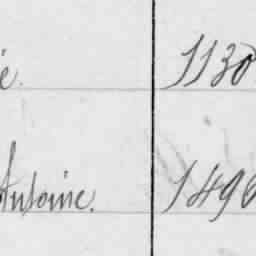 é. 1130
Antoine. 1496